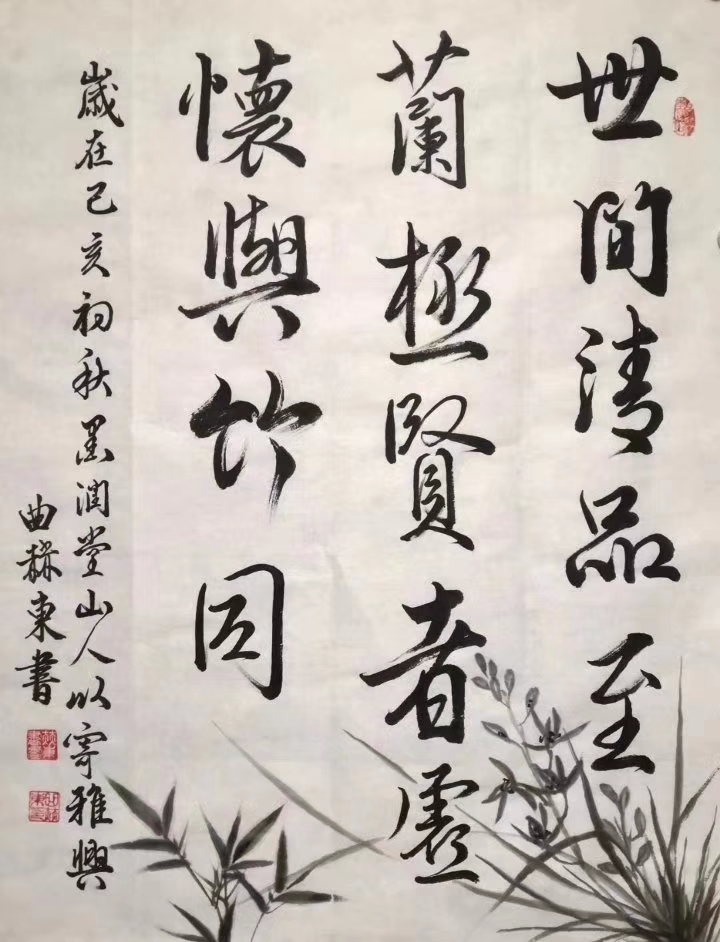 世间清品至
蘭極賢者虛
懷與竹同
歲在己亥初秋墨潤堂山人以寄雅興
曲赫東書